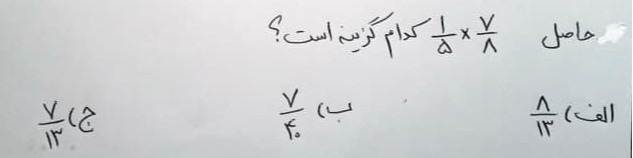 حاصل ۷/۸ × ۱/۵ کدام گزینه است؟
الف) ۸/۱۳ ب) ۷/۴۰ ج) ۷/۱۳